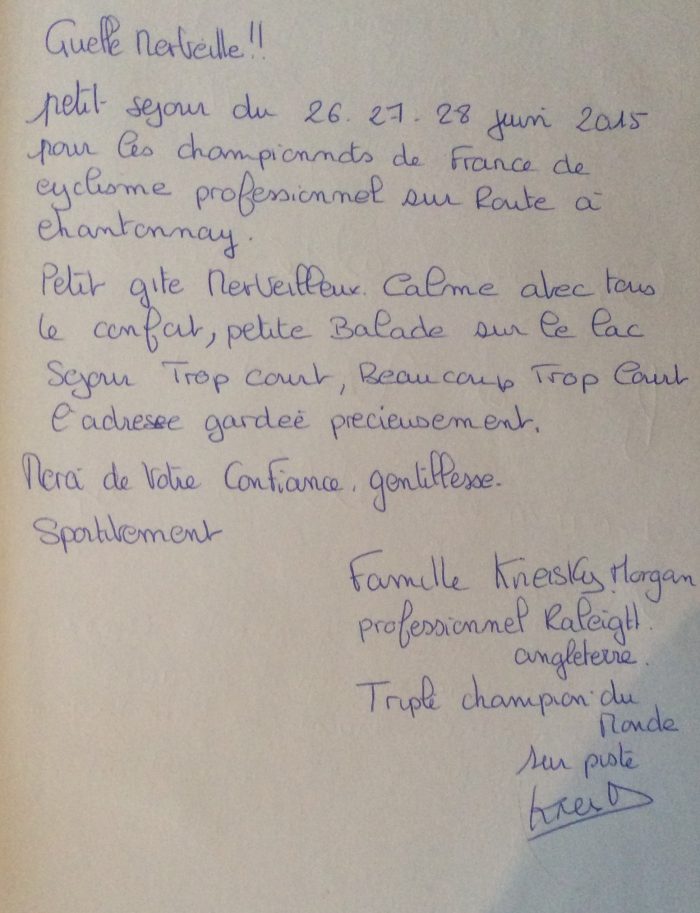 Quelle Merveille!!
petit sejour du 26.27.28 juin 2015
pour les championnats de France de
cyclisme professionnel sur Route à
chantonnay.
Petit gite Merveilleux. Calme avec tous
le confort, petite Balade sur le lac
Sejour Trop court, Beaucoup Trop Court
l'adresse gardeé precieusement.
Merci de Votre Confiance. gentillesse.
Sportivement
Famille Kneisky Morgan
professionnel Raleigh.
angleterre.
Triple champion du
Monde
sur piste